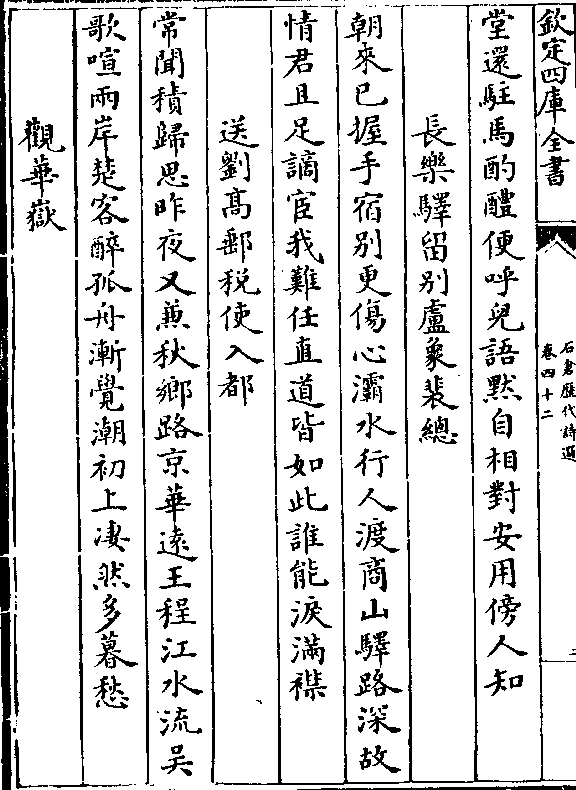 欽定四庫全書
石倉歷代詩選
卷四十二
堂還駐馬酌醴便呼兒語默自相對安用傍人知
長樂驛留別盧象裴總
朝來已握手宿別更傷心灞水行人渡商山驛路深故
情君且足謫宦我難任直道皆如此誰能淚滿襟
送劉髙郵稅使入都
常聞積歸思昨夜又兼秋鄉路京華逺王程江水流吴
歌喧兩岸楚客醉孤舟漸覺潮初上凄然多暮愁
觀華嶽